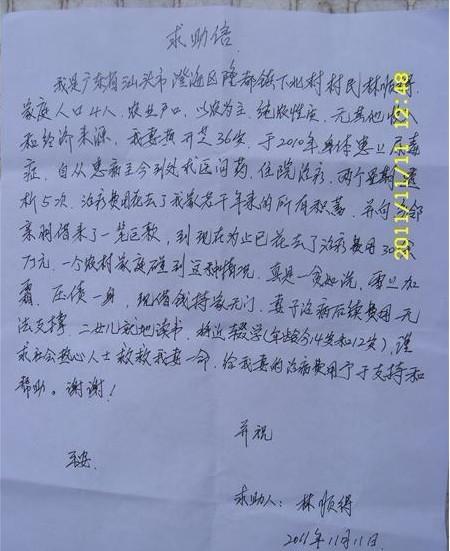 求助信
我是广东省汕头市澄海区隆都镇下北村村民林顺得
家庭人口4人,农业户口,以农为主,纯农性质,无其他收入
和经济来源,我妻 36岁,于2010年身体患上尿毒
症,自从患病至今到处求医问药,住院治疗,两个星期透
析5次,治疗费用花去了我家若干年来的所有积蓄,并向
亲朋借来了一笔巨款,到现在为止已花去了治疗费用30
万元,一个农村家庭碰到这种情况,真是一贫如洗,雪上加
霜,压债一身,现借钱持家无门,妻子治病后续费用无
法支撑,二女儿就地读书,将近辍学(年龄今14岁和12岁),谨
求社会热心人士救救我妻一命,给我妻的治病费用予于支持和
帮助。谢谢!
并祝
安
求助人:林顺得
2011年11月11日
2011/11/11 12:48